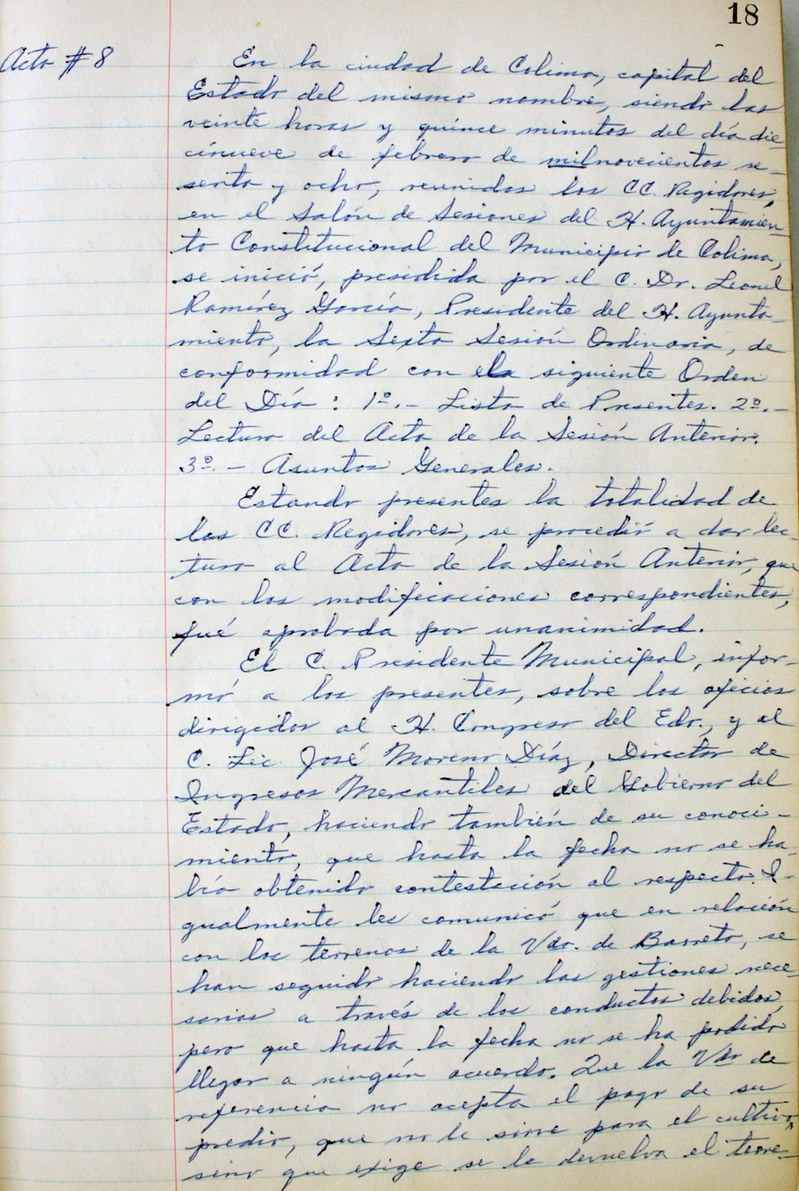 18
Acta # 8
En la ciudad de Colima, capital del
Estado del mismo nombre, siendo las
veinte horas y quince minutos del día die-
cinueve de febrero de milnovecientos se-
senta y ocho, reunidos los CC. Regidores,
en el Salón de Sesiones del H. Ayuntamien-
to Constitucional del Municipio de Colima,
se inició, presidida por el C. Dr. Leonel
Ramírez García, Presidente del H. Ayunta-
miento, la Sexta Sesión Ordinaria, de
conformidad con el siguiente Orden
del Día : 1º.- Lista de Presentes. 2º.-
Lectura del Acta de la Sesión Anterior.
3º.- Asuntos Generales.
Estando presentes la totalidad de
los CC. Regidores, se procedió a dar lec-
tura al Acta de la Sesión Anterior, que
con las modificaciones correspondientes,
fué aprobada por unanimidad.
El C. Presidente Municipal, infor-
mó a los presentes, sobre los oficios
dirigidos al H. Congreso del Edo., y al
C. Lic. José Moreno Díaz, Director de
Ingresos Mercantiles del Gobierno del
Estado, haciendo también de su conoci-
miento, que hasta la fecha no se ha-
bía obtenido contestación al respecto. I-
gualmente les comunicó que en relación
con los terrenos de la Vda. de Barreto, se
han seguido haciendo las gestiones nece-
sarias a través de los conductos debidos,
pero que hasta la fecha no se ha podido
llegar a ningún acuerdo. Que la Vda de
referencia no acepta el pago de su
predio, que no le sirve para el cultivo,
sino que exige se le devuelva el terre-